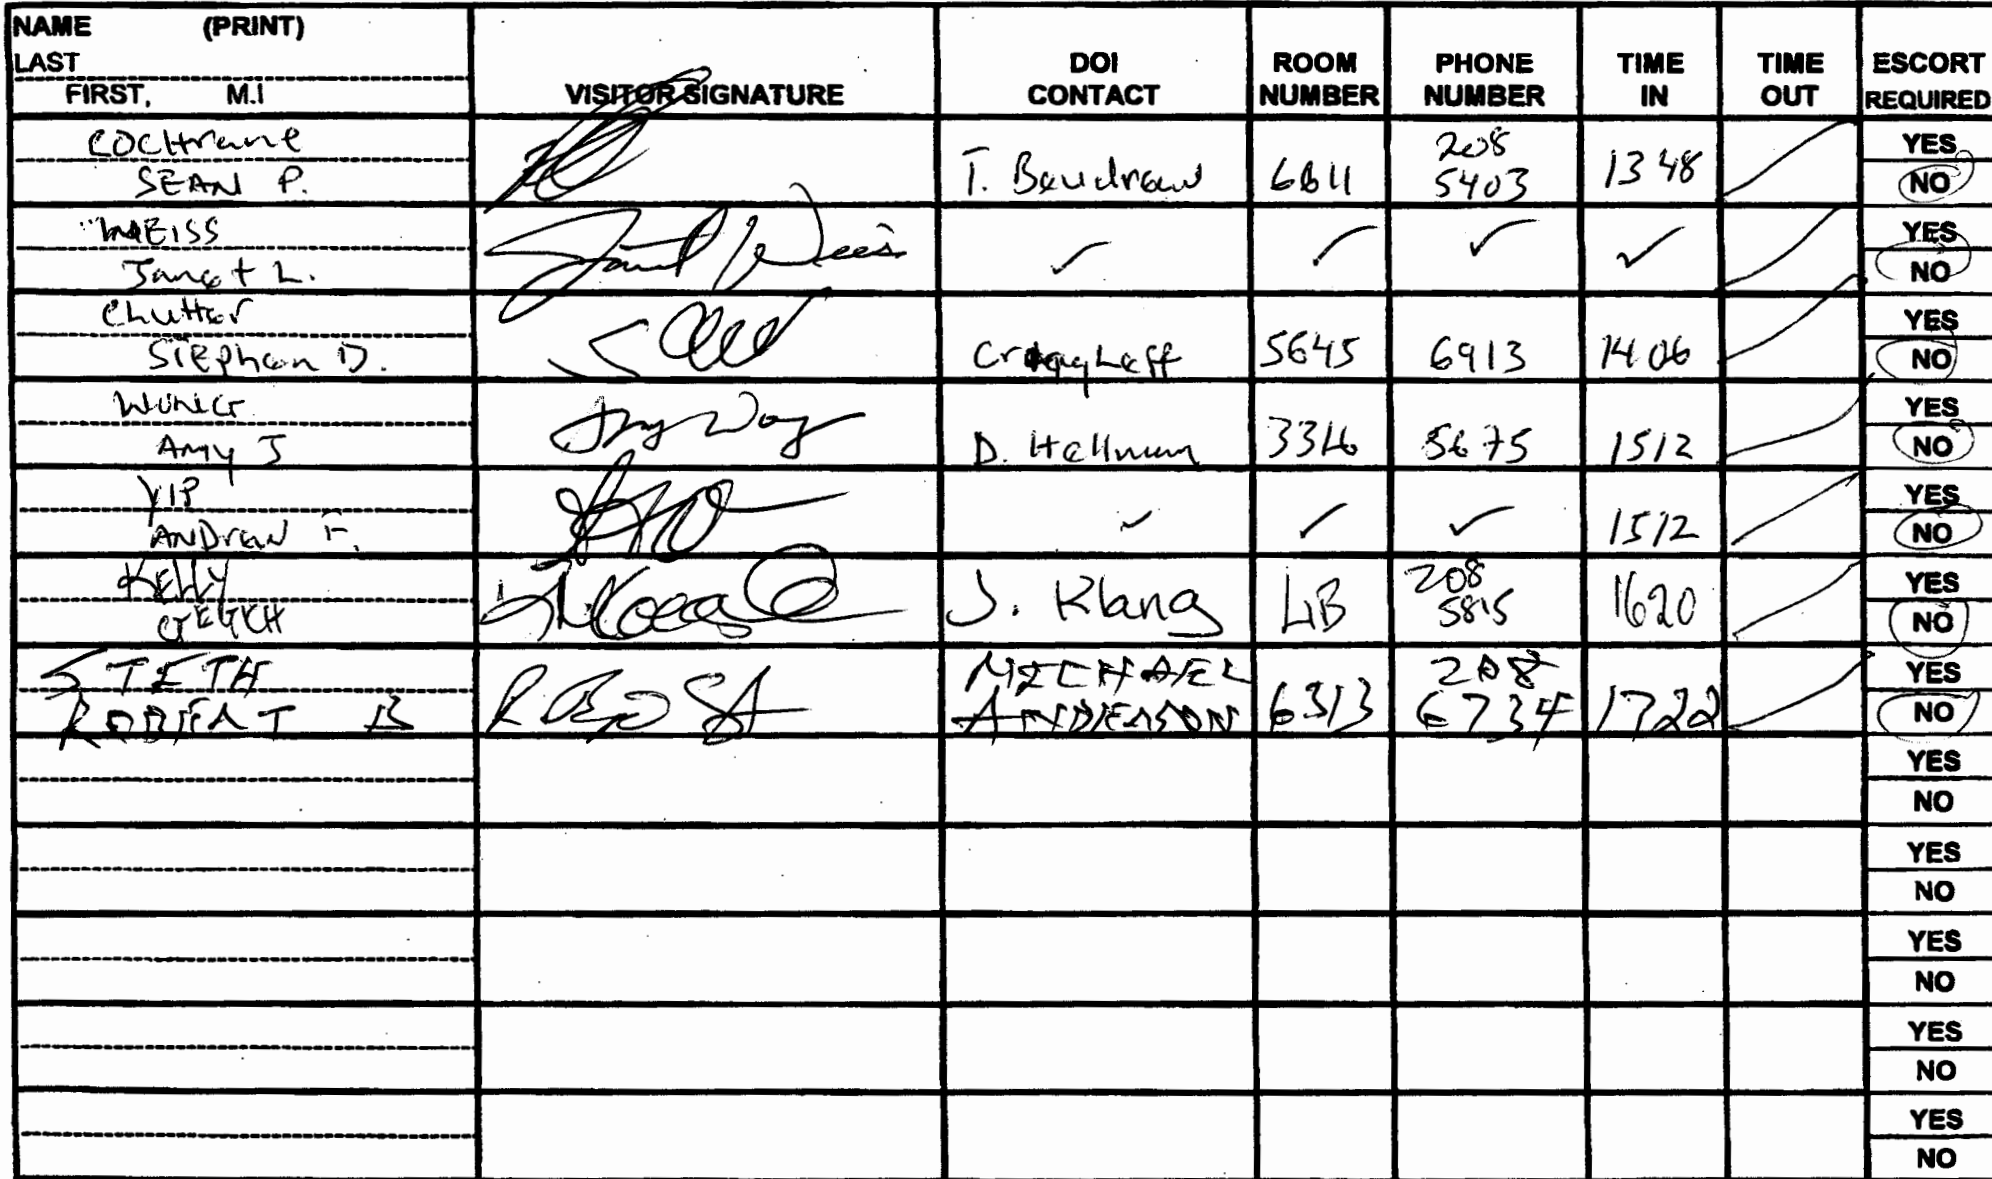 NAME (PRINT)
LAST
FIRST, M.I
VISITOR SIGNATURE
DOI CONTACT
ROOM NUMBER
PHONE NUMBER
TIME IN
TIME OUT
ESCORT REQUIRED
COCHrane
SEAN P.
T. Beudreau 6611 208 5403 1348
YES
NO
WEISS
Janet L.
Janet Weiss
✓ ✓ ✓ ✓
YES
NO
Chutter
STEphen D.
5645 6913 1406
YES
NO
Amy J
Amy Wong
D. Hellman 5675 1512
YES
NO
YIP
ANDrew F.
✓ ✓ ✓ 1512
YES
NO
KELLY
J. Klang 208 5815 1620
YES
NO
STETH
ROBERT B
MICHAEL ANDERSON 6313 208 6734 1722
YES
NO
YES
NO
YES
NO
YES
NO
YES
NO
YES
NO